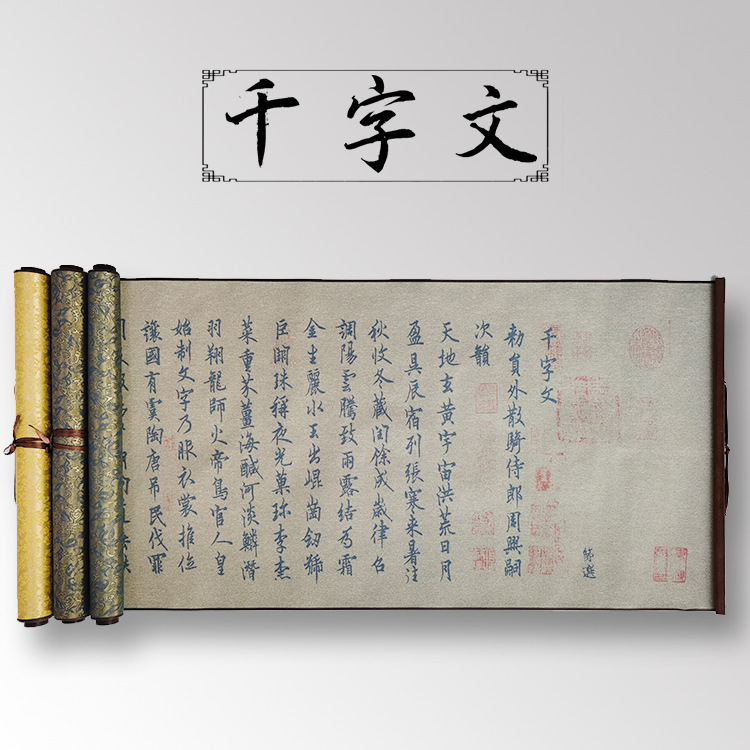 千字文
節選
千字文
勅員外散騎侍郎周興嗣
次韻
天地玄黃宇宙洪荒日月
盈昃辰宿列張寒來暑往
秋收冬藏閏餘成歲律召
調陽雲騰致雨露結為霜
金生麗水玉出崐崗劒號
巨闕珠稱夜光菓珎李柰
菜重芥薑海鹹河淡鱗潛
羽翔龍師火帝鳥官人皇
始制文字乃服衣裳推位
讓國有虞陶唐吊民伐罪